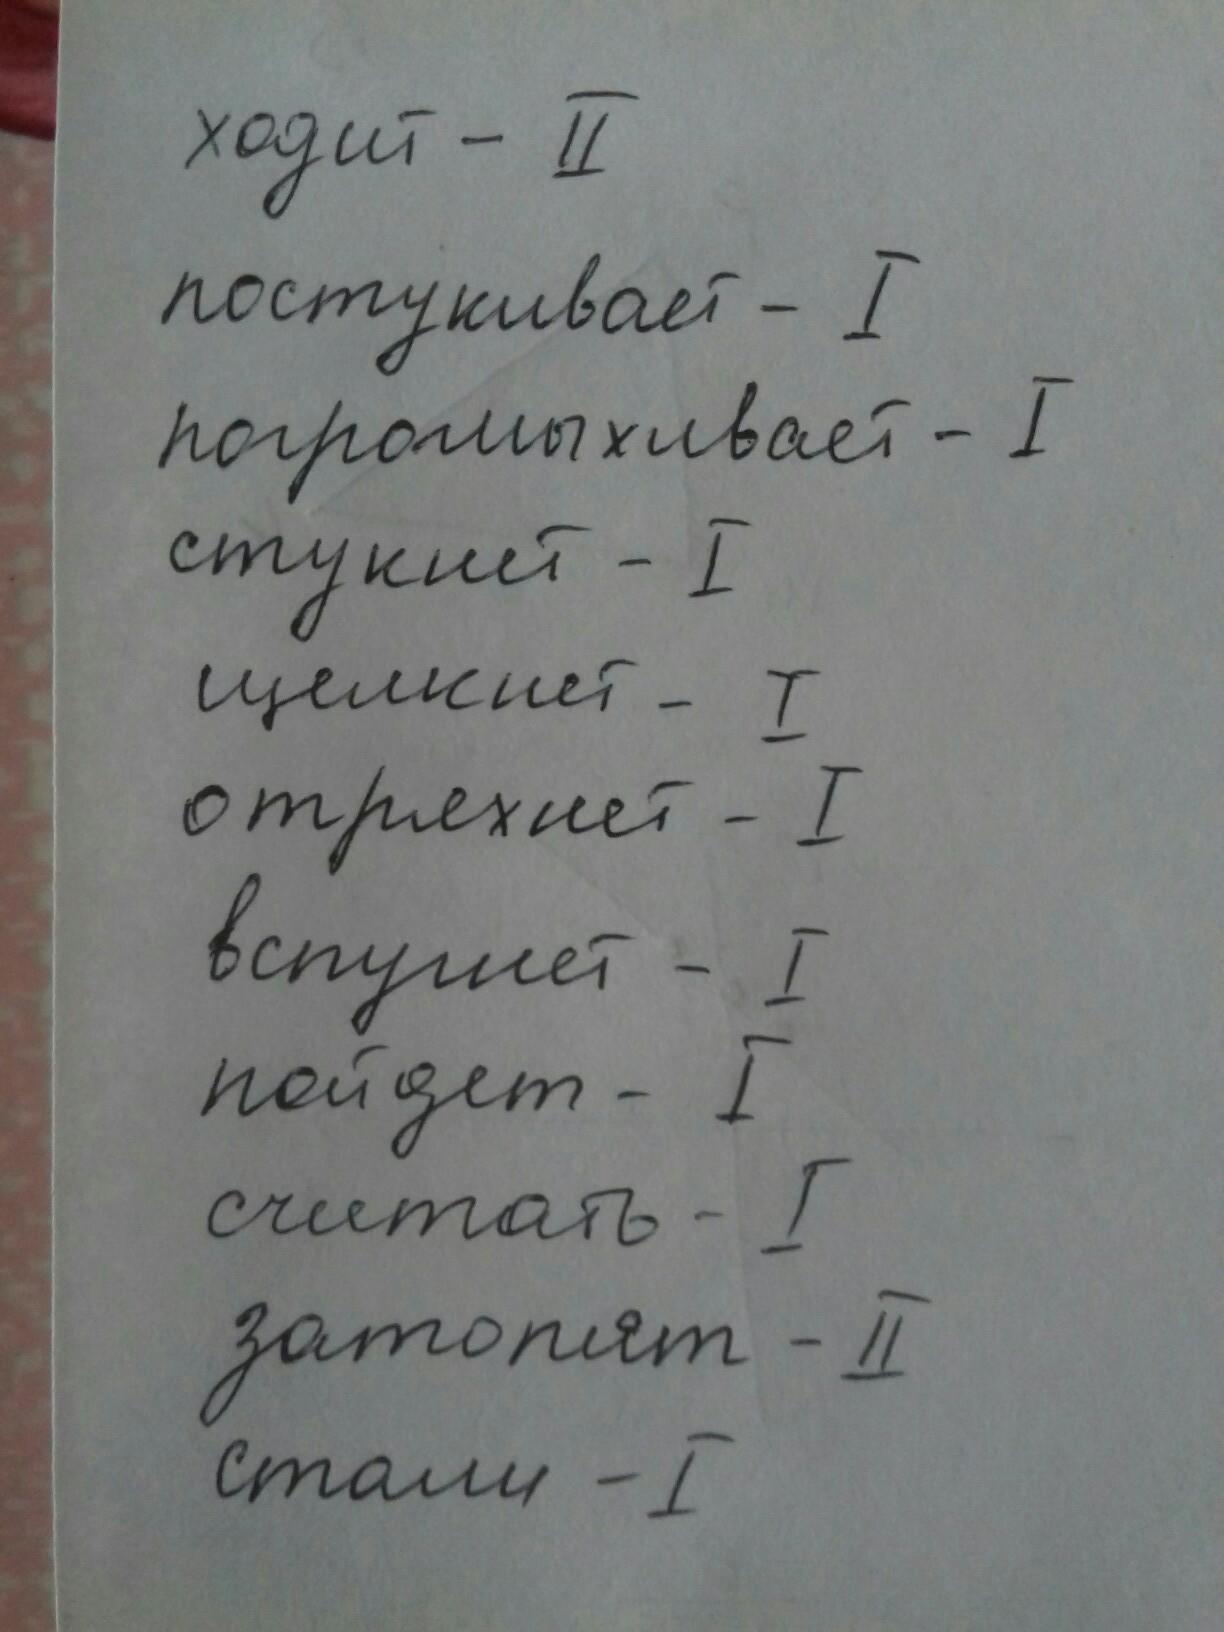 ходит - II
постукивает - I
погромыхивает - I
стукнет - I
щелкнет - I
отряхнет - I
вспугнет - I
пойдет - I
считать - I
затопят - II
стали - I